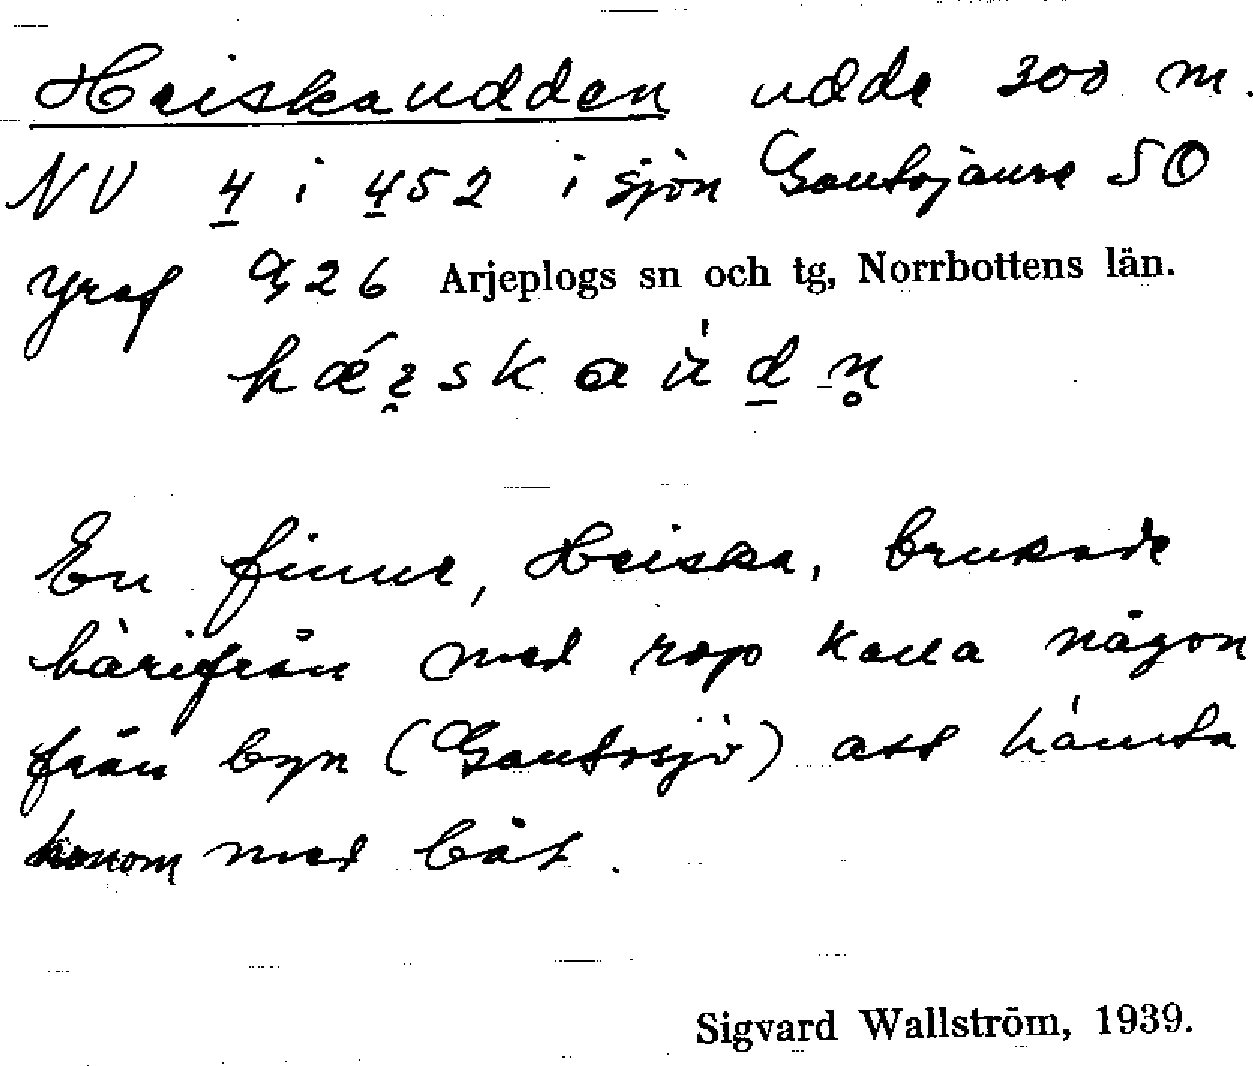 Heiskaudden udde 300 m.
NV 4 i 452 i sjön Gautojaure SO
Yraf 26 Arjeplogs sn och tg, Norrbottens län.
En finne, Heiska, brukade
härifrån med rop kalla någon
från byn (Gautosjö) att hämta
honom med båt.
Sigvard Wallström, 1939.